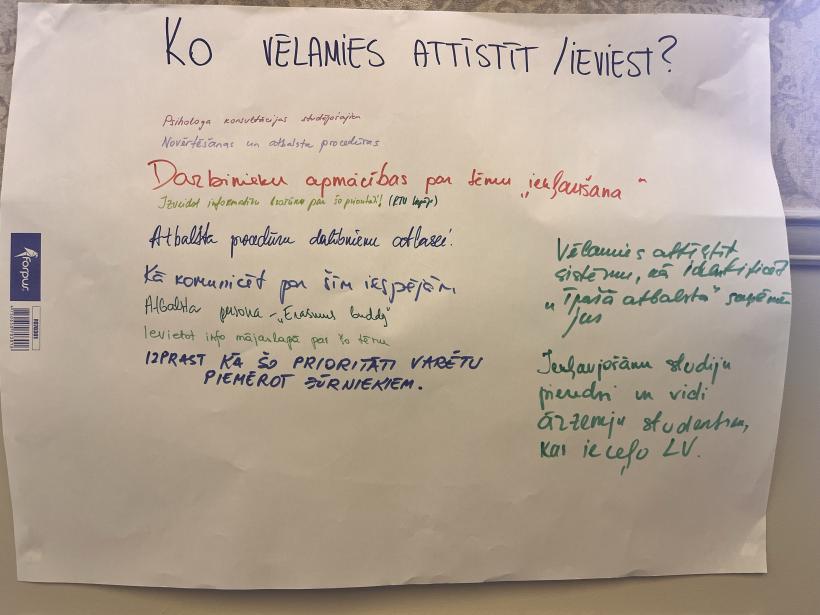 KO VĒLAMIES ATTĪSTĪT /IEVIEST?
Psihologa konsultācijas studējošajiem
Novērtēšanas un atbalsta procedūras
Darbinieku apmācības par tēmu „iekļaušana"
Izveidot informatīvu lapu par šo prioritāti! (RTU lapā)
Atbalsta procedūru dalībnieku atlasei.
Kā komunicēt par šīm iespējām,
Atbalsta persona - „Erasmus buddy"
Ievietot info mājaslapā par šo tēmu
IZPRAST KĀ ŠO PRIORITĀTI VARĒTU
PIEMĒROT JŪRNIEKIEM.
Vēlamies attīstīt
sistēmu, kā identificēt
„īpašā atbalsta" saņēmē
jus
Iekļaujošāku studiju
pieredzi un vidi
ārzemju studentiem,
kas ieceļo LV.
farpus